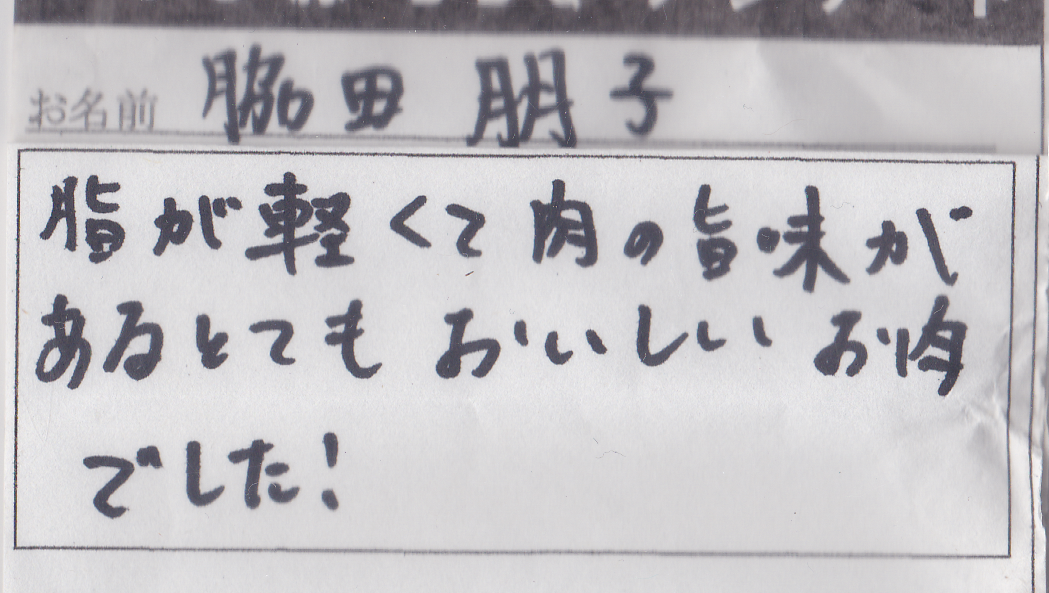 お名前 脇田 朋子
脂が軽くて肉の旨味が
あるとてもおいしいお肉
でした!